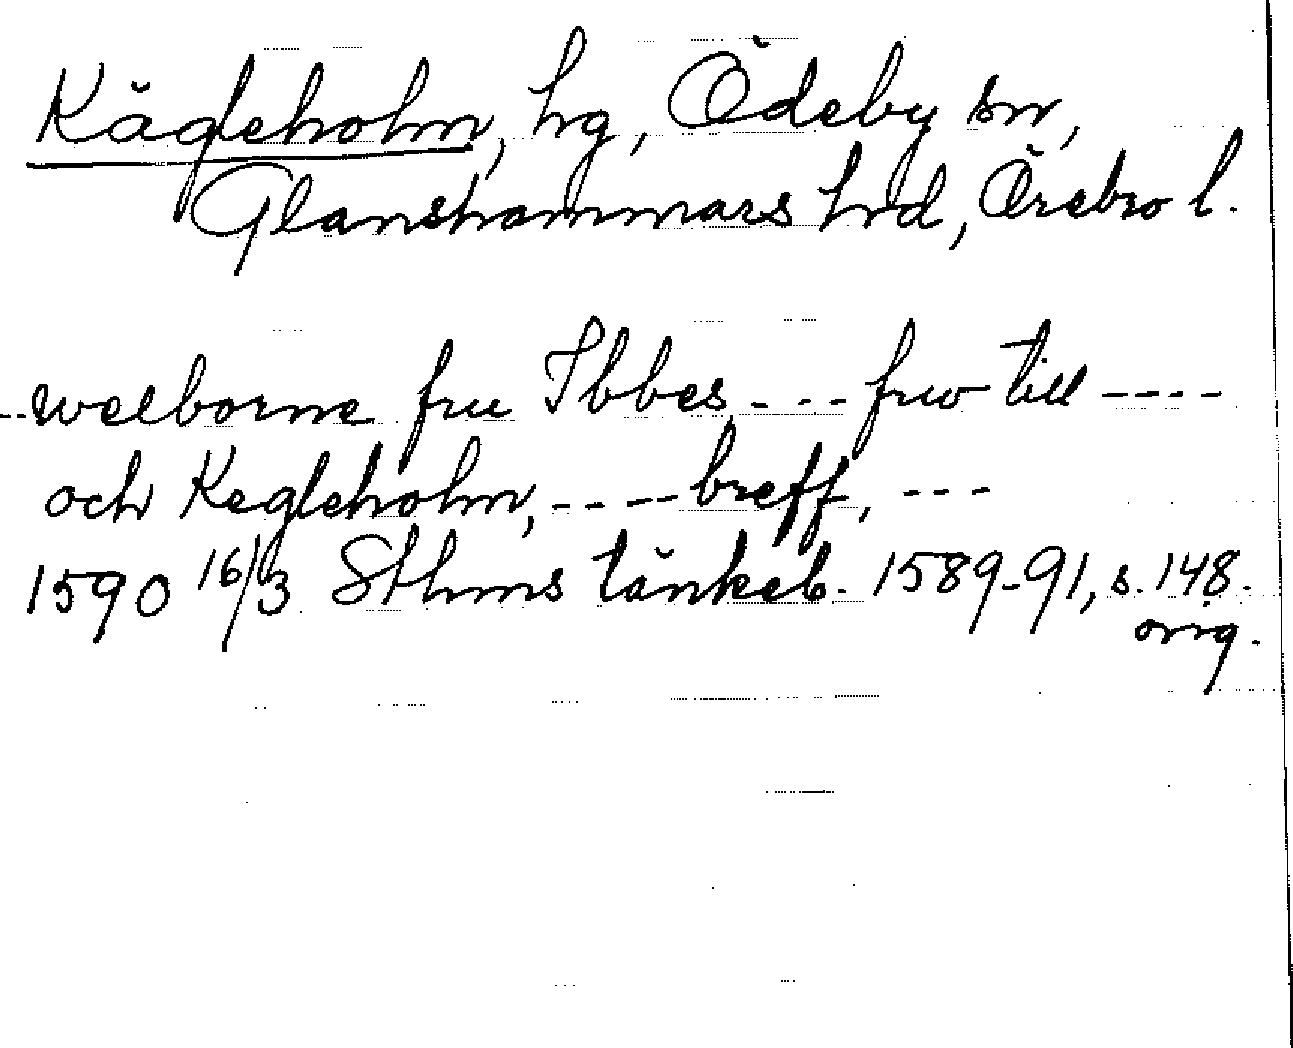 Kägleholm, hg, Ödeby sn,
Glanshammars hrd, Örebro l.
--welborne fru Ibbes - - - frw till - - - -
och Kegleholm, - - - - breff, - - -
1590 16/3 Sthms tänkeb. 1589-91, s. 148.
orig.